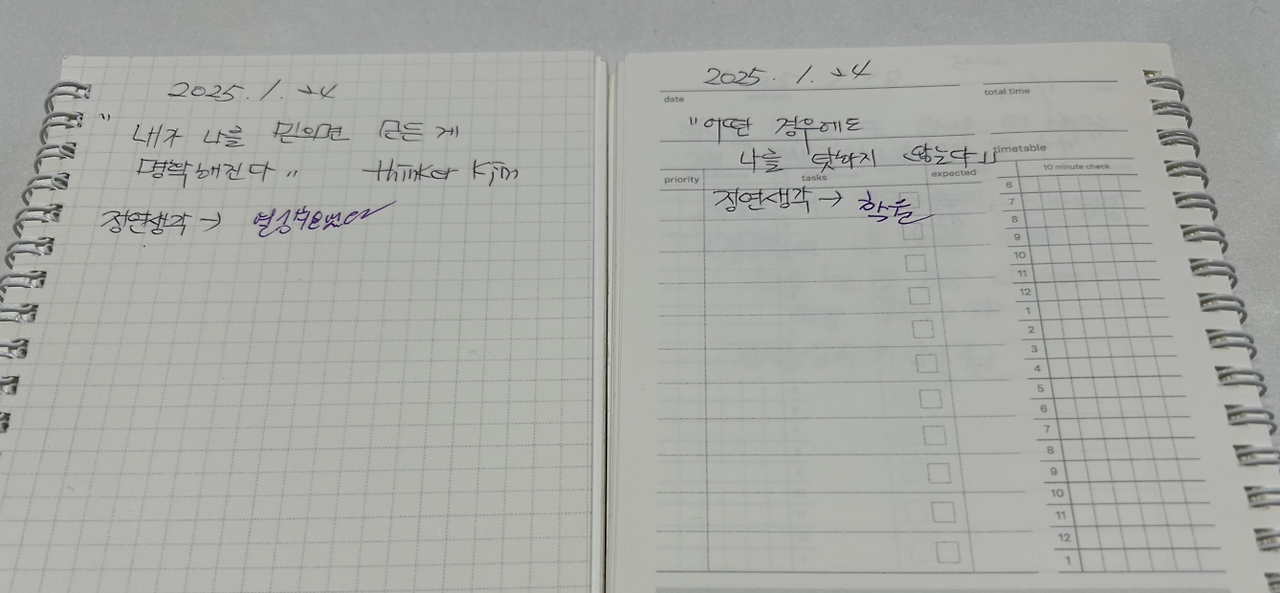 2025. 1. 24
"내가 나를 믿으면 모든 게
명확해진다" thinker Kim
정연생각 →
2025. 1. 24
date
total time
"어떤 경우에도
나를 탓하지 않는다"
timetable
priority
tasks
expected
10 minute check
정연생각 →
6
7
8
9
10
11
12
1
2
3
4
5
6
7
8
9
10
11
12
1